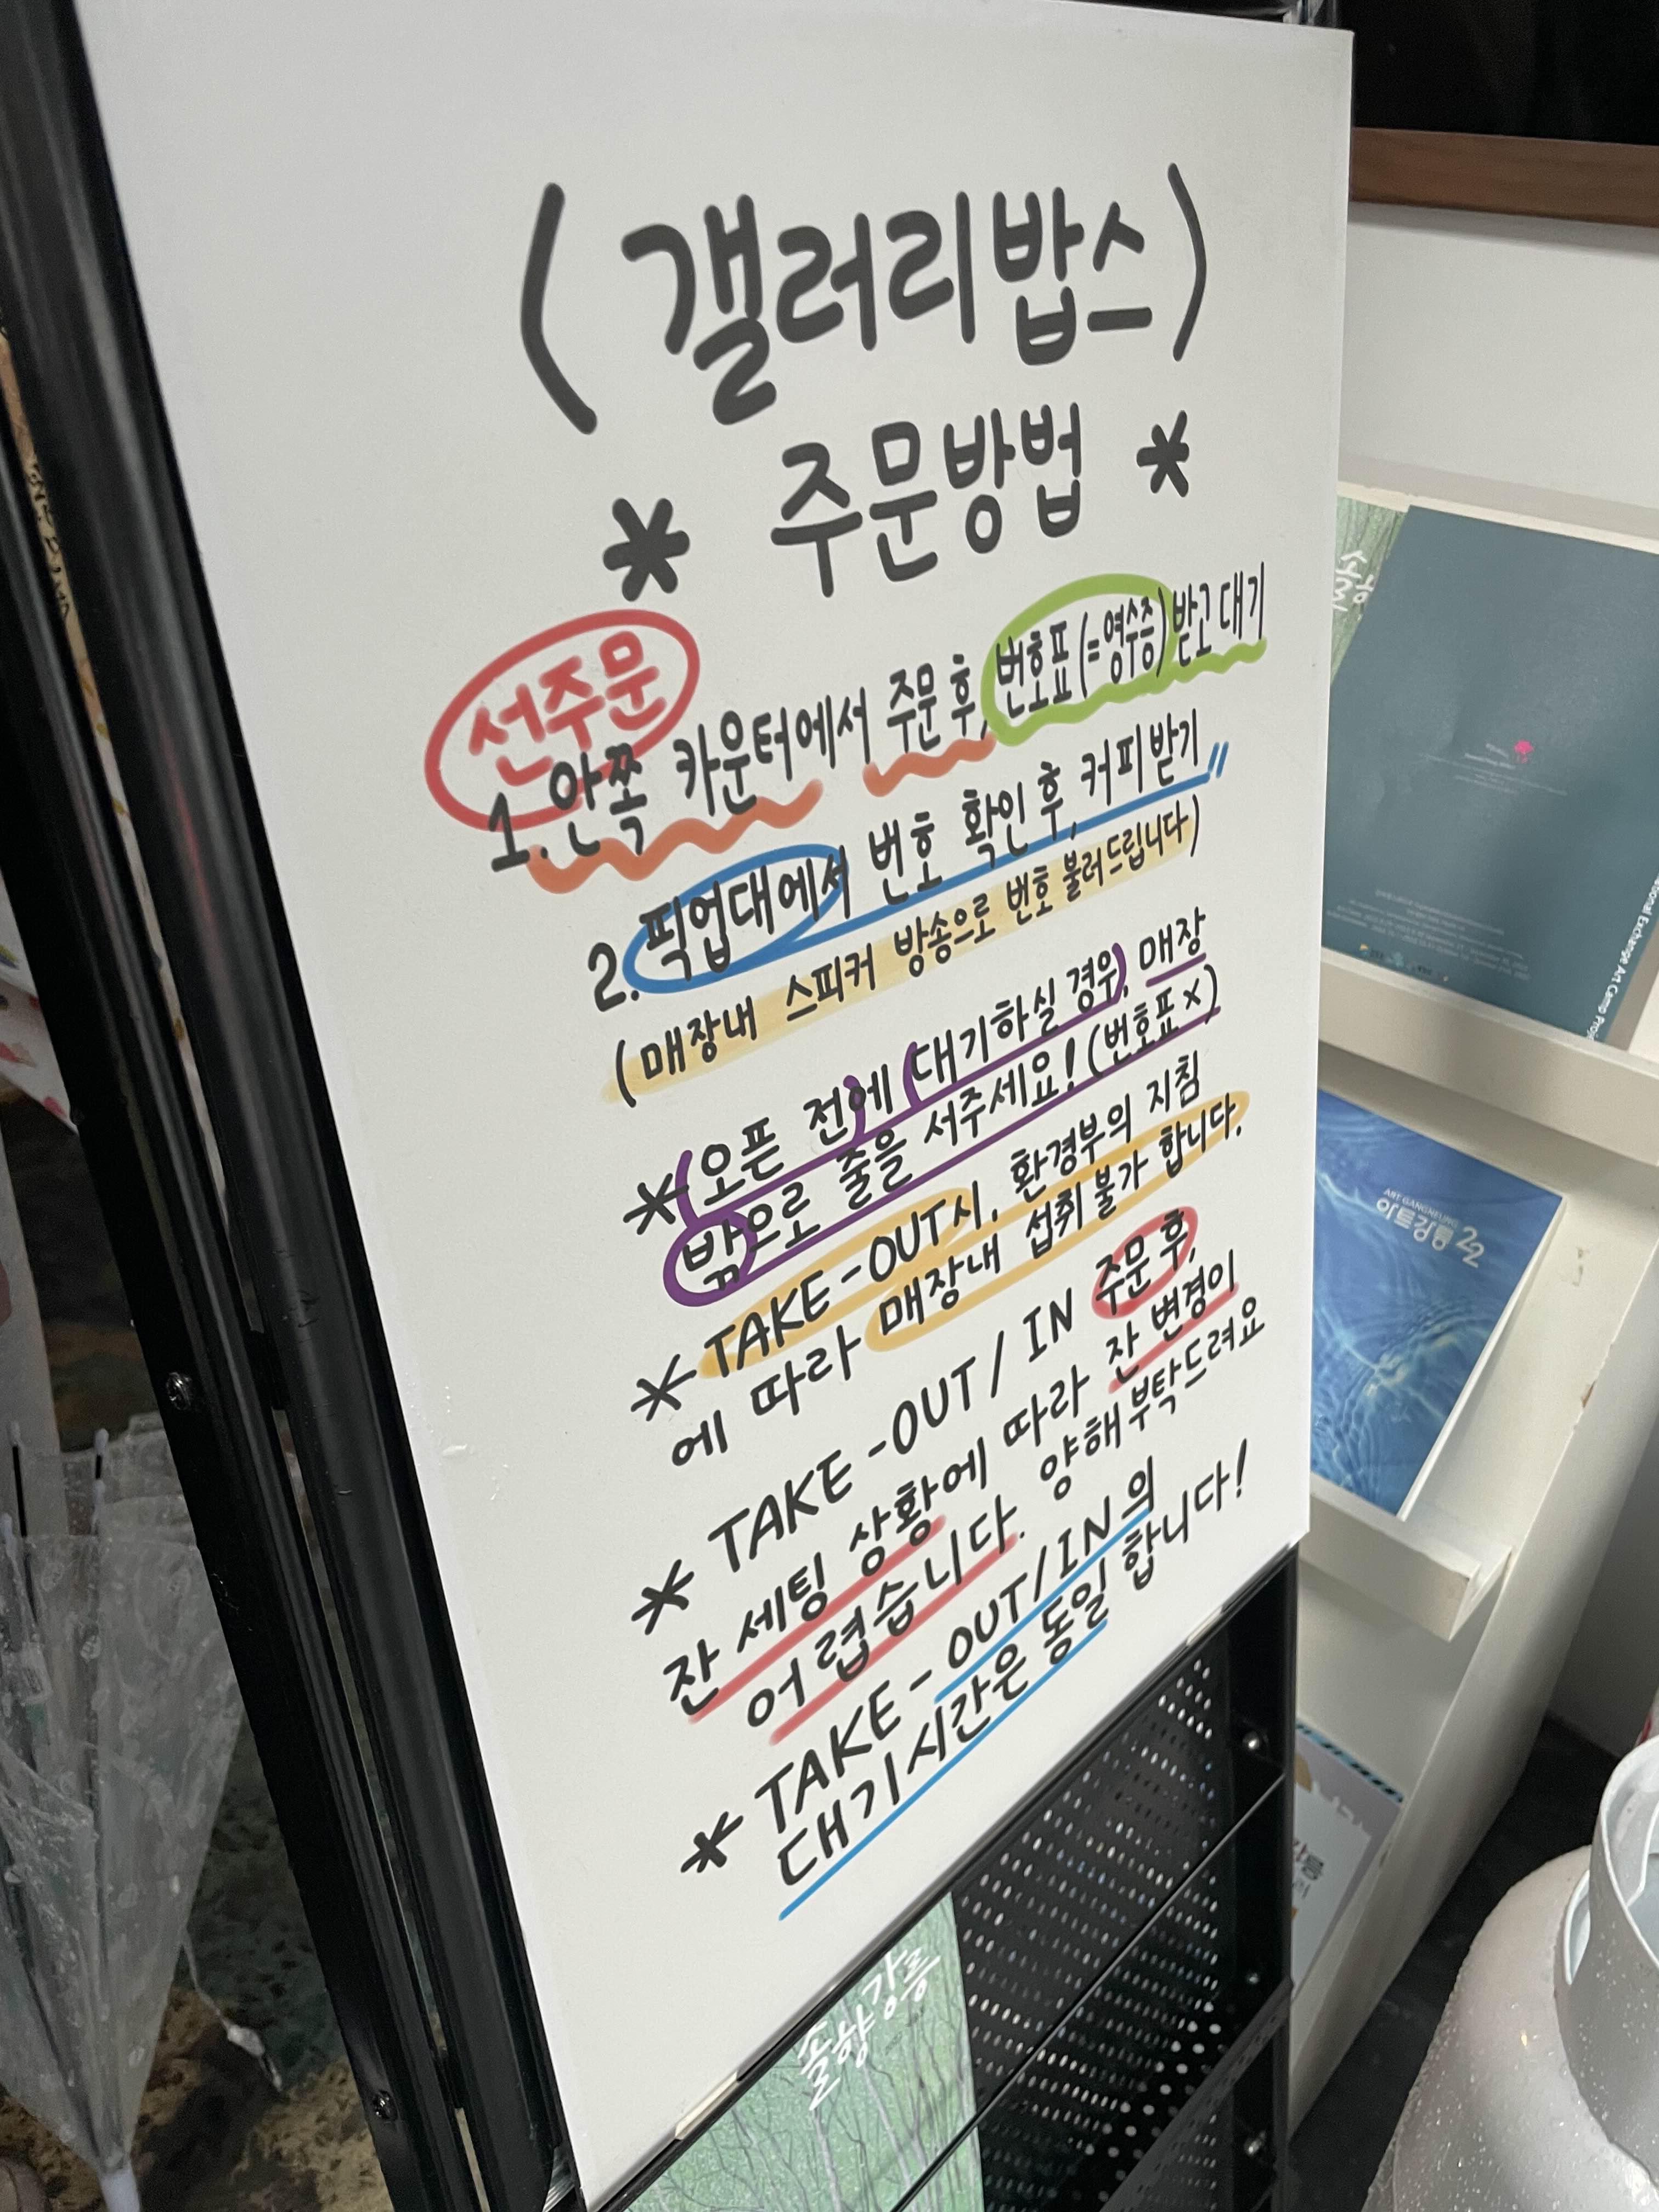 (갤러리밥스)
* 주문방법 *
선주문
1. 안쪽 카운터에서 주문 후, 번호표(=영수증) 받고 대기
2. 픽업대에서 번호 확인 후, 커피받기
(매장내 스피커 방송으로 번호 불러드립니다)
* (오픈 전)에 (대기하실 경우), 매장
밖으로 줄을 서주세요! (번호표 x)
* TAKE-OUT시, 환경부의 지침
에 따라 매장내 섭취 불가 합니다.
* TAKE-OUT / IN 주문 후,
잔 세팅 상황에 따라 잔 변경이
어렵습니다. 양해부탁드려요
* TAKE-OUT/IN의
대기시간은 동일 합니다!
솔향강릉
솔향
ational Exchange Art Camp Proj
ART GANGNEUNG
아트강릉 22